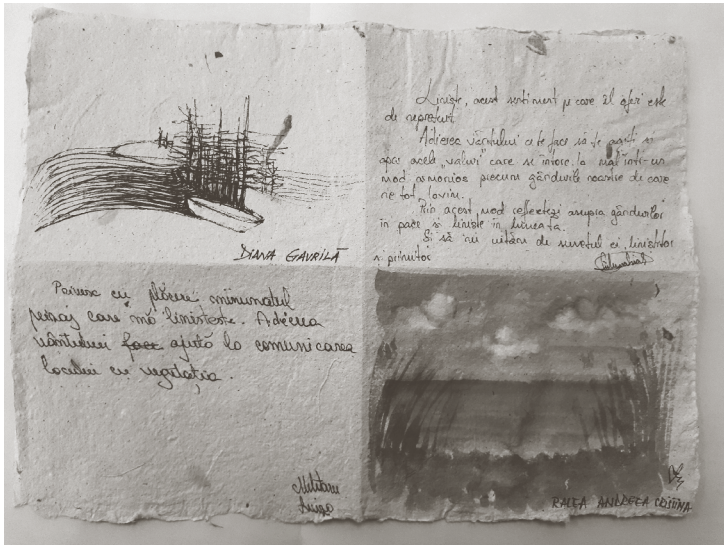 Liniște, acest sentiment pe care îl oferi este
de neprețuit.
Adierea vântului ce te face să te agiți si
apoi acele „valuri" care se întorc la mal într-un
mod armonios precum gândurile noastre de care
ne tot lovim.
Prin acest mod reflectezi asupra gândurilor
în pace și liniște în
Și să nu uităm de sunetul ei, liniștitor
și primitor
DIANA GAVRILĂ
Privesc cu plăcere minunatul
peisaj care mă liniștește. Adierea
vântului face ajută la comunicarea
locului cu vegetația.
Militaru
RALEA ANDREEA COSTINA